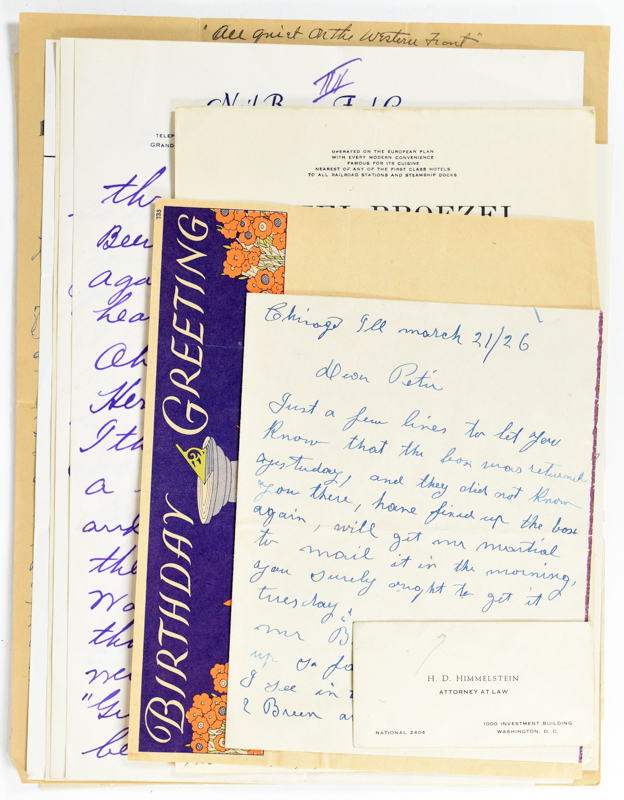 "All Quiet On the Western Front"
III
TELEP
GRAND
th
Been
aga
hea
Oh
Her
I th
a
and
the
Wo
th
"Gu
be
OPERATED ON THE EUROPEAN PLAN
WITH EVERY MODERN CONVENIENCE
FAMOUS FOR ITS CUISINE
NEAREST OF ANY OF THE FIRST CLASS HOTELS
TO ALL RAILROAD STATIONS AND STEAMSHIP DOCKS
BROEZEL
133
BIRTHDAY GREETING
Chicago Ill march 21/26
Dear Peter
Just a few lines to let you
Know that the box was returned
yestuday, and they did not know
you there, have fixed up the box
again, will get mr martial
to mail it in the morning,
you surely ought to get it
tuesday,
mr B
up so fa
I see in
& Breen a
H. D. HIMMELSTEIN
ATTORNEY AT LAW
NATIONAL 2404
1000 INVESTMENT BUILDING
WASHINGTON, D. C.